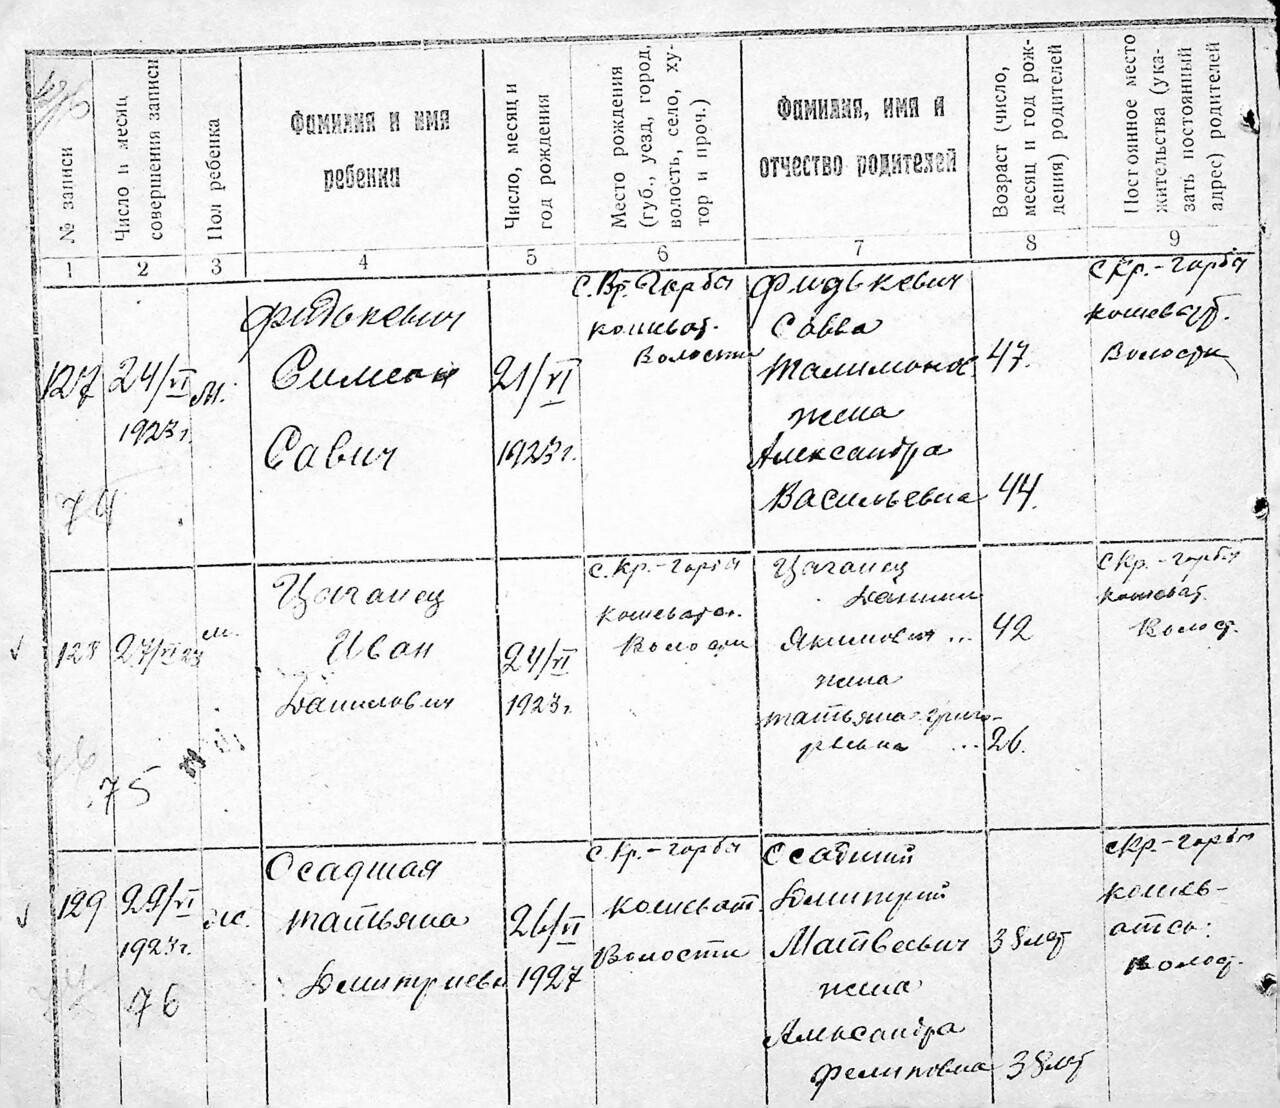 № записи
Число и месяц
совершения записи
Пол ребенка
Фамилия и имя
ребенка
Число, месяц и
год рождения
Место рождения
(губ., уезд, город,
волость, село, ху-
тор и проч.)
Фамилия, имя и
отчество родителей
Возраст (число,
месяц и год рож-
дения) родителей
Постоянное место
жительства (ука-
зать постоянный
адрес) родителей
1 2 3 4 5 6 7 8 9
127
24/VI
1923 г.
м.
Фидькевич
Симеон
Савич
21/VI
1923 г.
Кошеват.
Волости
Фидькевич
Савва
жена
Александра
Васильевна
47.
44.
с Кр.-Горбы
Кошеват.
Волости
74
128
27/VI 23
м.
Цаганец
Иван
Данилович
24/VI
1923 г.
с. Кр.-Горбы
Кошеватск.
Волости
Цаганец
Даниил
Якимович ...
жена
Татьяна Григо-
рьевна ...
42
26.
с Кр.-Горбы
Кошеват.
Волост.
75
129
29/VI
1923 г.
ж.
Осадчая
Татьяна
Дмитриевн
26/VI
1927
с. Кр.-Горбы
Кошеват.
Волости
Осадчий
Дмитрий
Матвеевич
жена
Александра
Филиповна
38 лет
38 лет
с Кр.-Горбы
Кошев-
атск.
Волост.
76